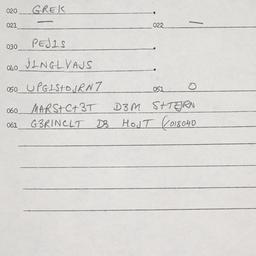 020 GREK
021 — 022 —
030 PEJ1S
040 J1NGLVAJS
050 UPG1S+OJRN7 051 O
060 MARS+C+3T D3M S++7ERN
061 G3RINCLT D3 HOJT (/018040